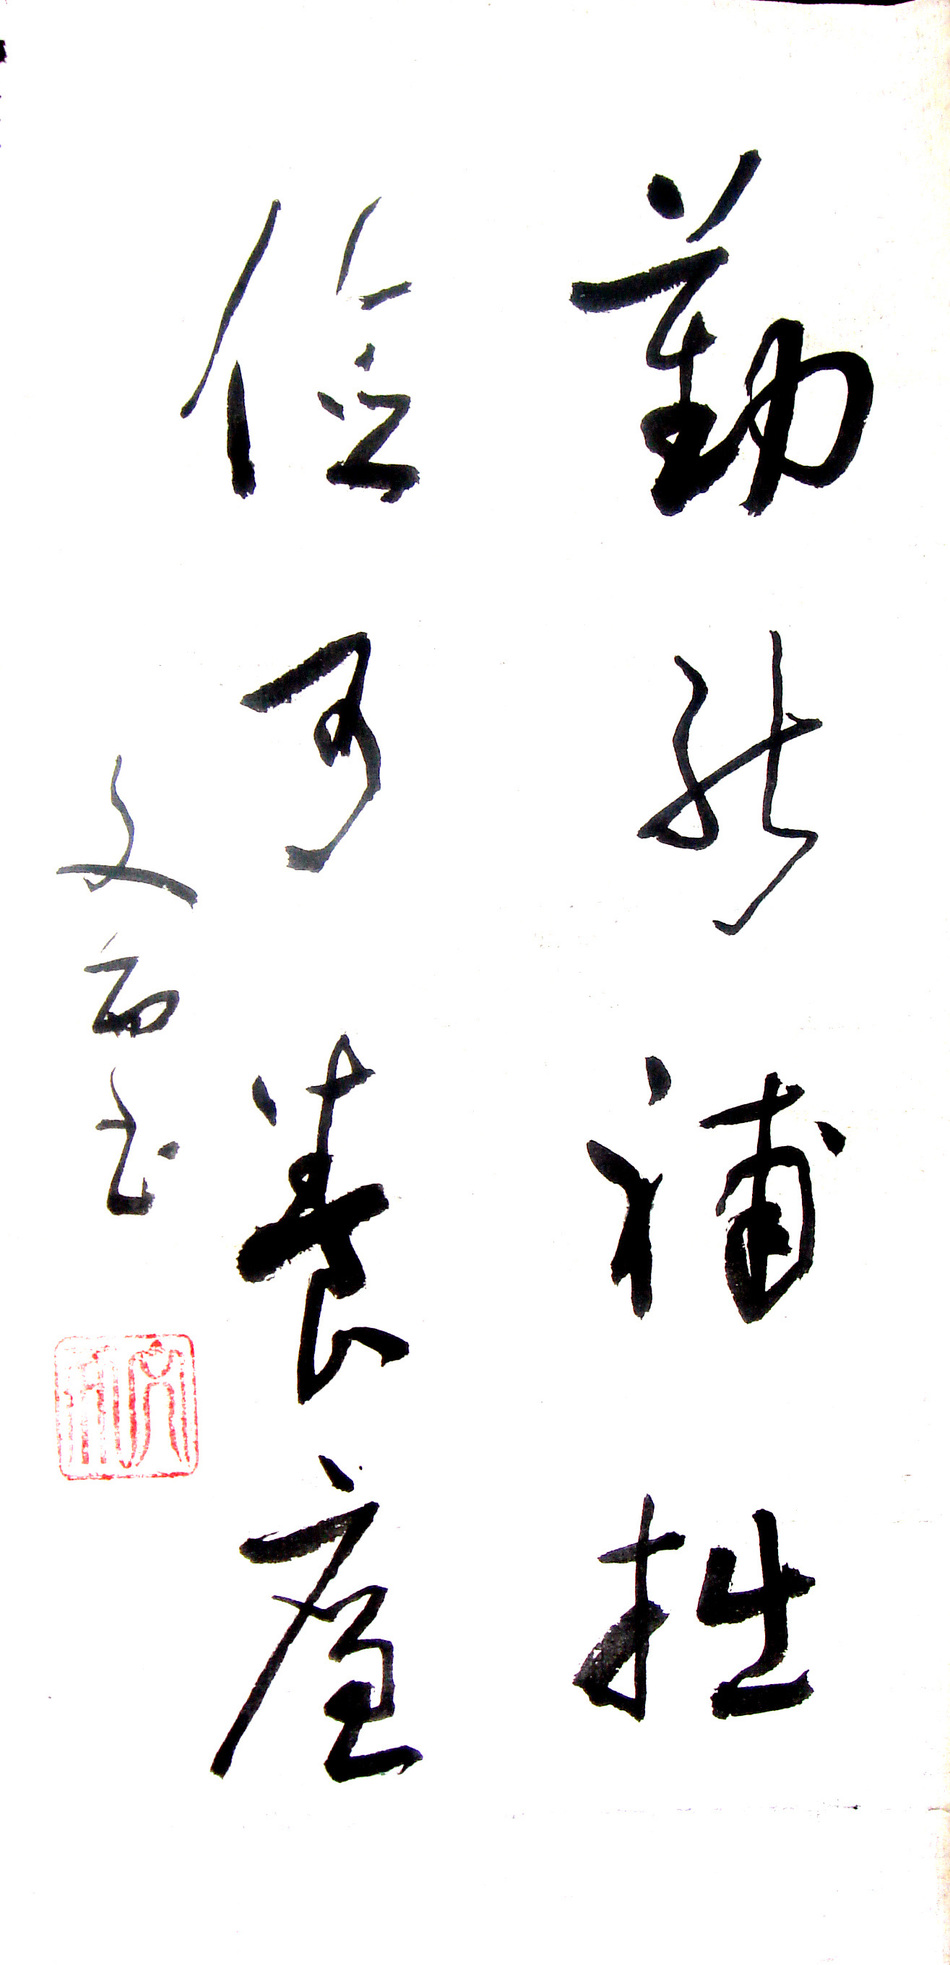 勤能補拙
儉可養廉
文
书